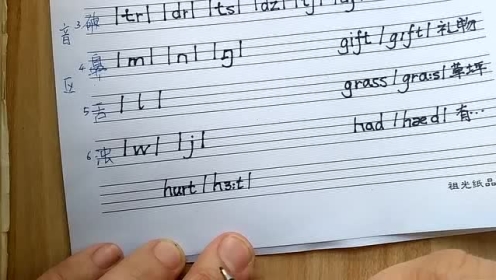 音 3 破 |tr| |dr| |ts| |dz| |tʃ| |dʒ|
区 4 鼻 |m| |n| |ŋ| gift |gɪft| 礼物
5 舌 | l | grass |grɑːs| 草坪
6 浊 |w| |j| had |hæd| 有…
hurt |hɜːt|
祖光纸品